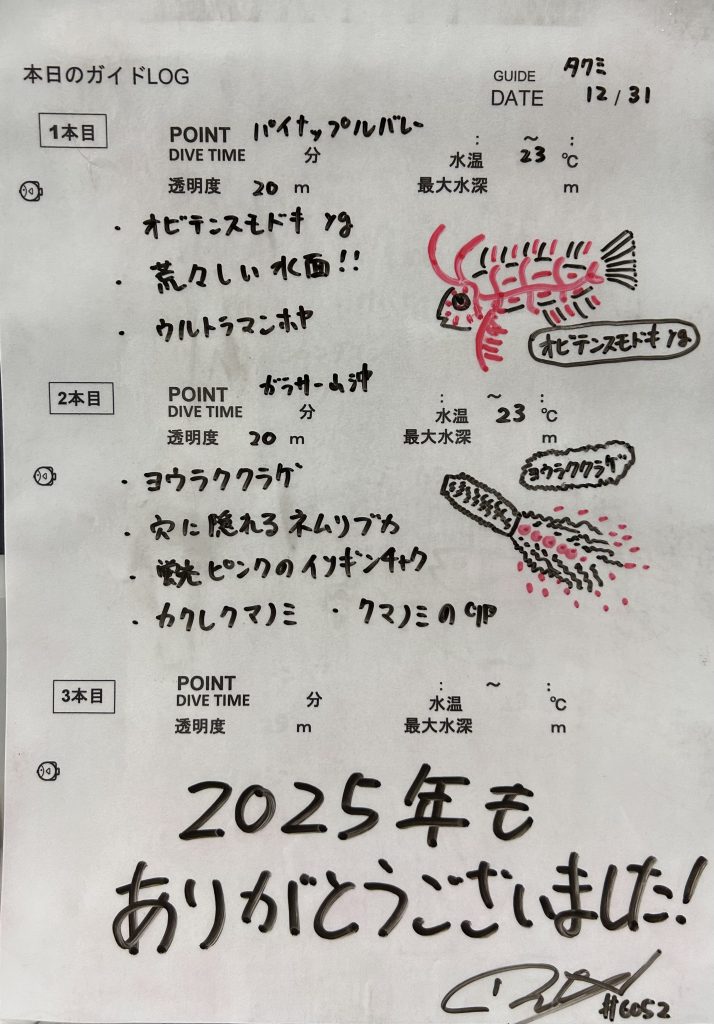 本日のガイドLOG
GUIDE タクミ
DATE 12/31
1本目
POINT パイナップルバレー
DIVE TIME 分 : ～ :
水温 23 ℃
透明度 20 m 最大水深 m
・オビテンスモドキ yg
・荒々しい水面!!
・ウルトラマンホヤ
オビテンスモドキ yg
2本目
POINT ガラサー山沖
DIVE TIME 分 : ～ :
水温 23 ℃
透明度 20 m 最大水深 m
・ヨウラククラゲ
・穴に隠れるネムリブカ
・蛍光ピンクのイソギンチャク
・カクレクマノミ ・クマノミの
ヨウラククラゲ
3本目
POINT
DIVE TIME 分 : ～ :
水温 ℃
透明度 m 最大水深 m
2025年も
ありがとうございました!
#6052